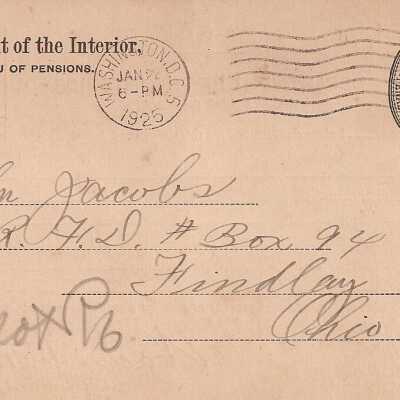 t of the Interior,
U OF PENSIONS.
WASHINGTON, D.C. 5
JAN
6-PM
1925
n Jacobs
R. F. D. # Box 94
Findlay
Ohio